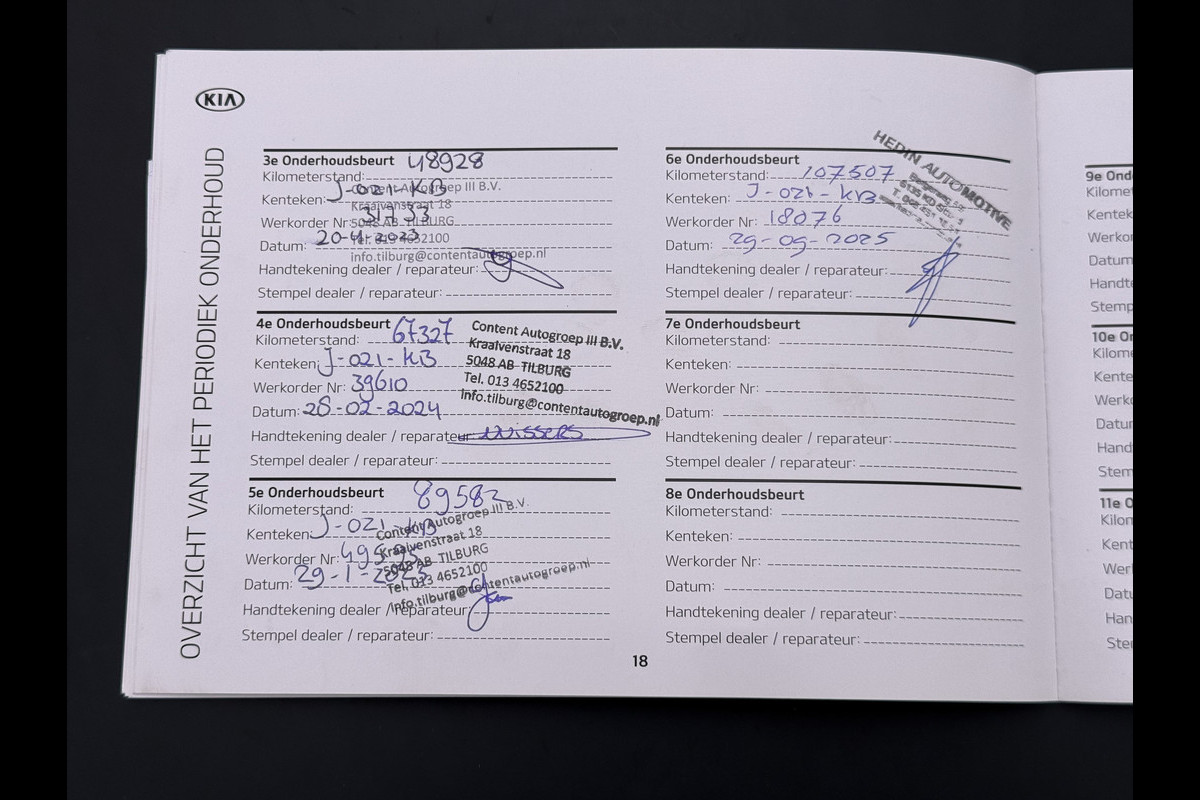 KIA
OVERZICHT VAN HET PERIODIEK ONDERHOUD
3e Onderhoudsbeurt
Kilometerstand: 48928
Kenteken: J-021-KB
Werkorder Nr:
Datum: 20-4-2023
Handtekening dealer / reparateur:
Stempel dealer / reparateur:
Content Autogroep III B.V.
Kraaivenstraat 18
5048 AB TILBURG
Tel. 013 4652100
info.tilburg@contentautogroep.nl
4e Onderhoudsbeurt
Kilometerstand: 67327
Kenteken: J-021-KB
Werkorder Nr: 39610
Datum: 28-02-2024
Handtekening dealer / reparateur:
Stempel dealer / reparateur:
Content Autogroep III B.V.
Kraaivenstraat 18
5048 AB TILBURG
Tel. 013 4652100
info.tilburg@contentautogroep.nl
5e Onderhoudsbeurt
Kilometerstand: 89582
Kenteken: J-021-KB
Werkorder Nr:
Datum: 29-1-2025
Handtekening dealer / reparateur:
Stempel dealer / reparateur:
Content Autogroep III B.V.
Kraaivenstraat 18
5048 AB TILBURG
Tel. 013 4652100
info.tilburg@contentautogroep.nl
6e Onderhoudsbeurt
Kilometerstand: 107507
Kenteken: J-021-KB
Werkorder Nr: 18076
Datum: 29-09-2025
Handtekening dealer / reparateur:
Stempel dealer / reparateur:
HEDIN AUTOMOTIVE
7e Onderhoudsbeurt
Kilometerstand:
Kenteken:
Werkorder Nr:
Datum:
Handtekening dealer / reparateur:
Stempel dealer / reparateur:
8e Onderhoudsbeurt
Kilometerstand:
Kenteken:
Werkorder Nr:
Datum:
Handtekening dealer / reparateur:
Stempel dealer / reparateur:
18
9e Ond
Kilome
Kentek
Werko
Datum:
Handte
Stemp
10e On
Kilome
Kente
Werk
Datur
Hand
Stem
11e O
Kilon
Kent
Wer
Datu
Han
Ste